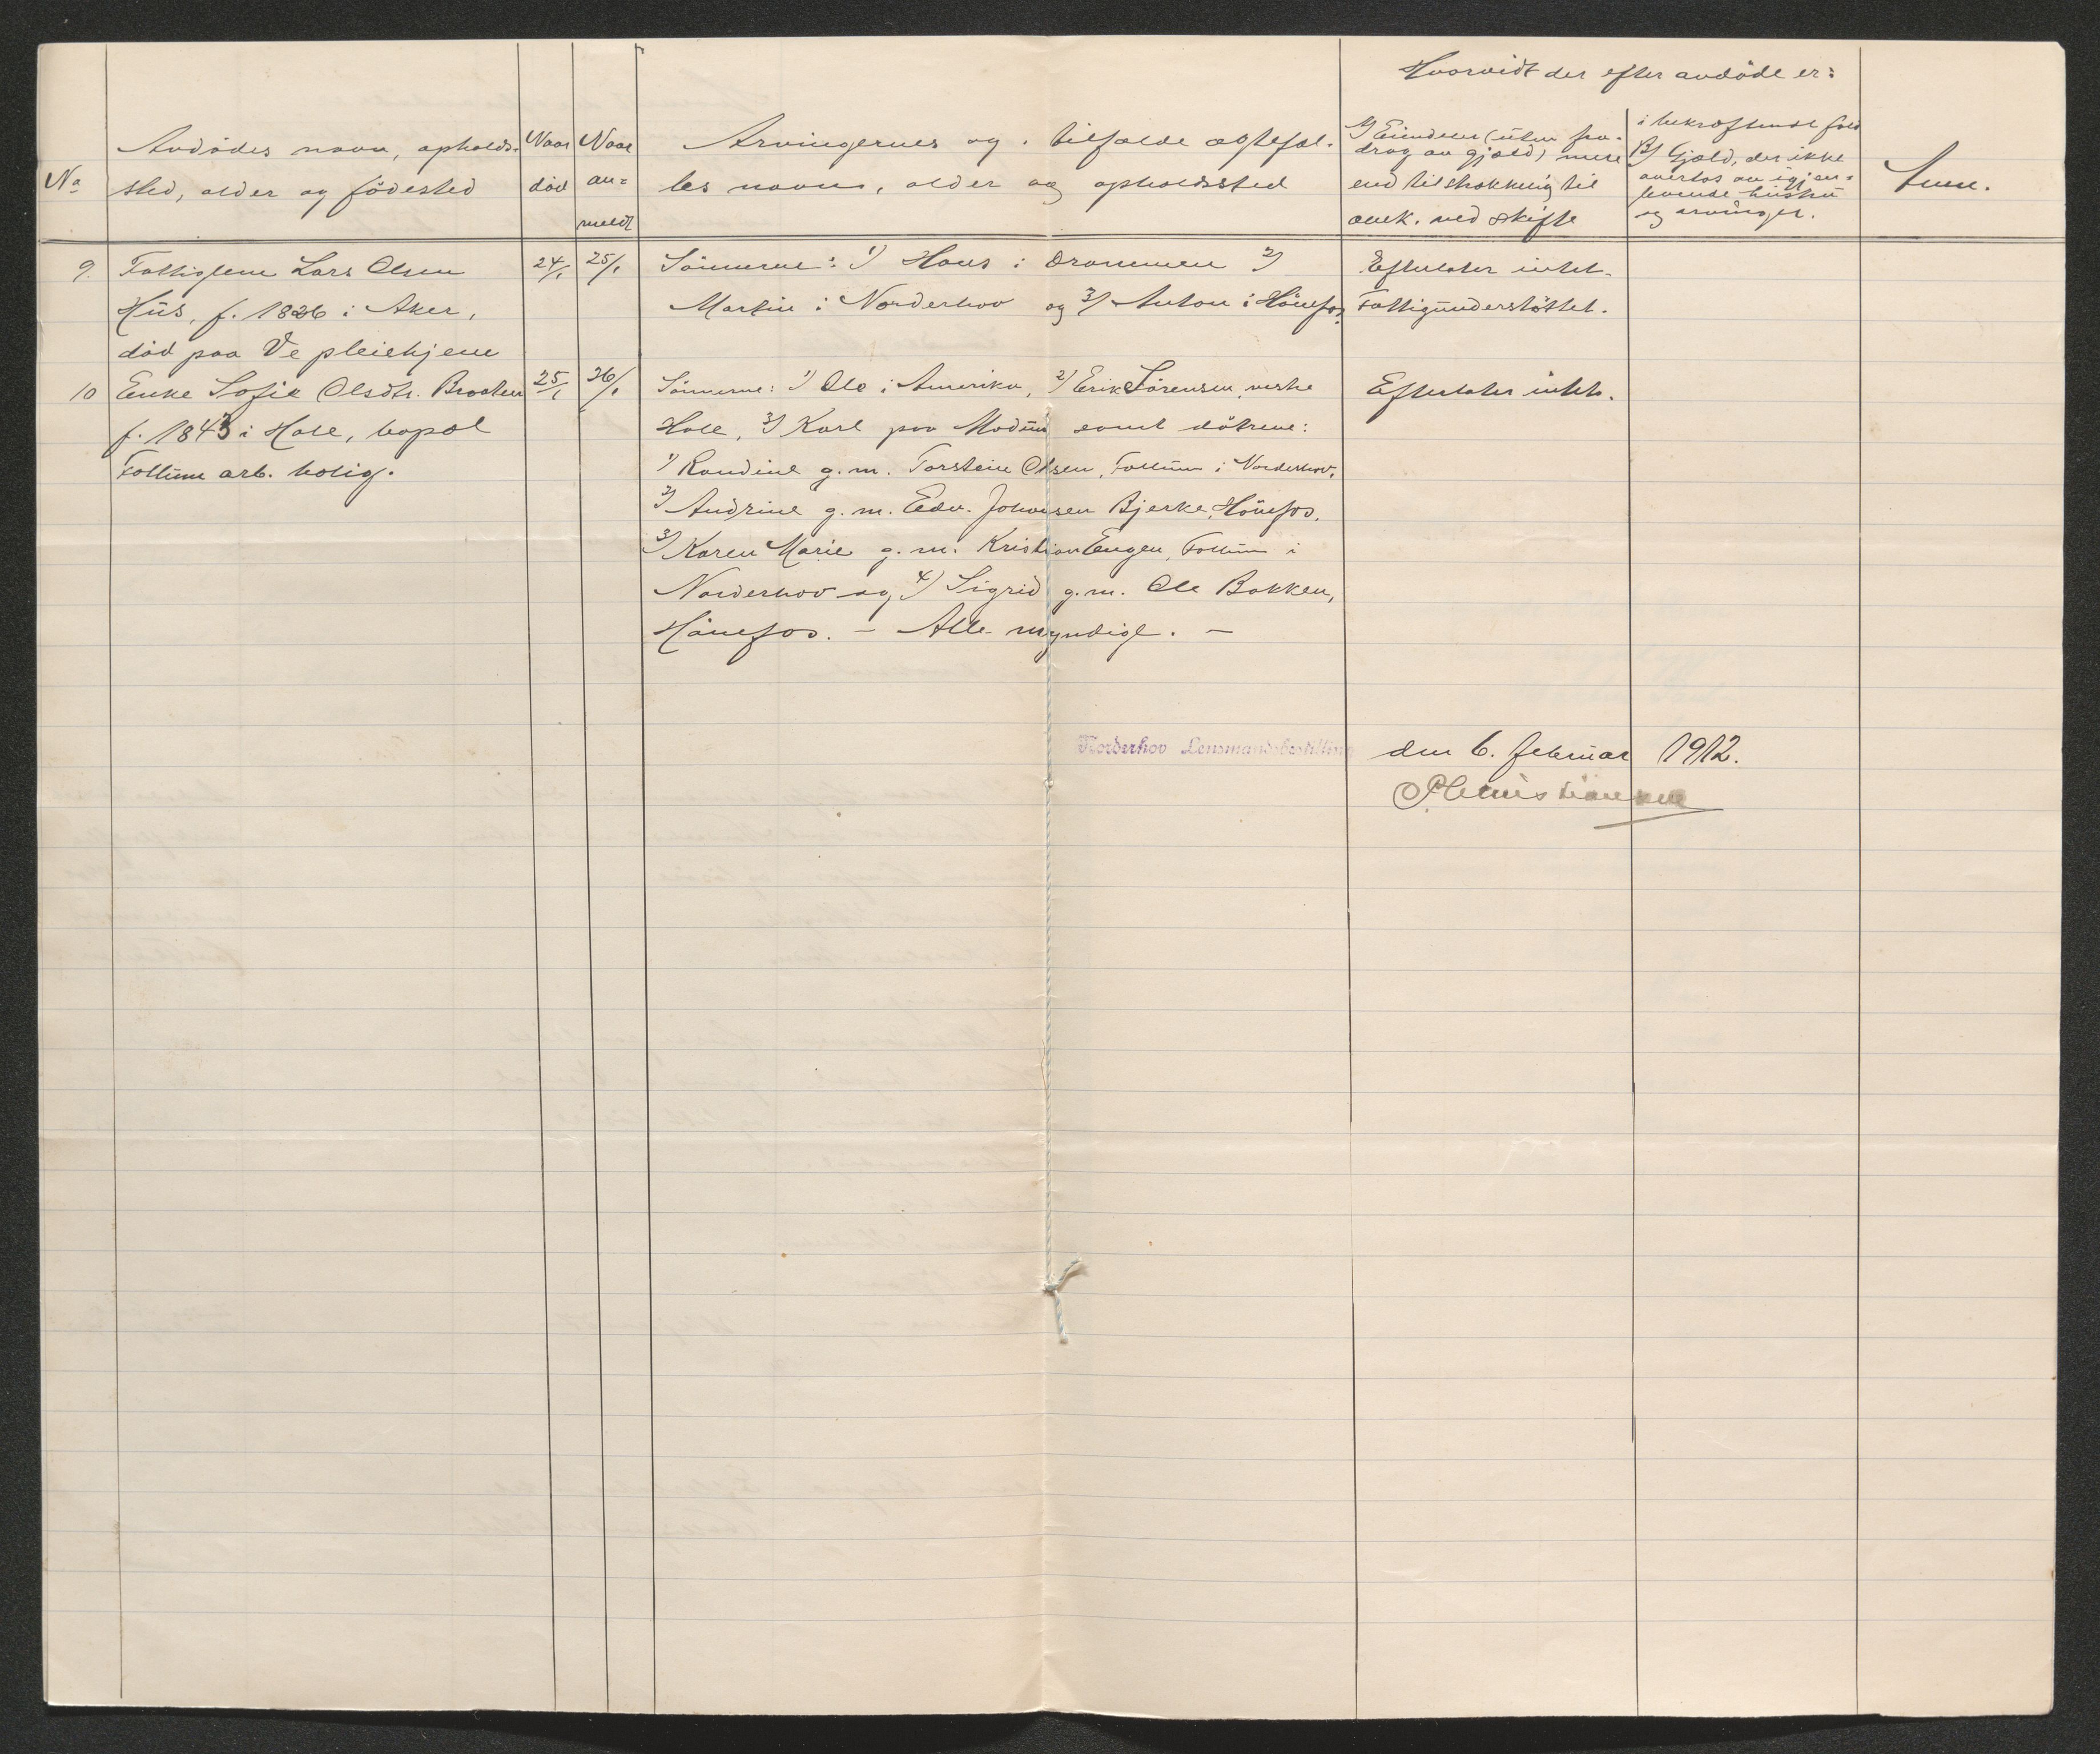 Hvorvidt der efter avdöde er:
No
Avdödes navn, opholds-
sted, alder og födested
Naar
död
Naar
an-
meldt
Arvingernes og i tilfælde ægtefæl-
les navn, alder og opholdssted
A) Eiendeler (uten fra-
drag av gjæld) mere
end tilstrækkelig til
anek. ved skifte
i bekræftende fald
B) Gjæld, der ikke
overtas av igjen-
levende hustru
og arvinger.
Anm.
9. Fattiglem Lars Olsen
Hus, f. 1826 i Aker,
död paa Ve pleiehjem
24/1 25/1
Sönnerne: 1) Hans i Drammen 2)
Martin i Norderhov og 3) Anton i Hönefos.
Efterlater intet.
Fattigunderstöttet.
10 Enke Sofie Olsdtr. Braaten
f. 1843 i Hole, bopæl
Follum arb. bolig.
25/1 26/1
Sönnerne: 1) Ole i Amerika, 2) Erik Sörensen, nestre
Hole, 3) Karl paa Modum samt dötrene:
1) Randine g.m. Torstein Olsen, Follum i Norderhov,
2) Andrine g.m. Edv. Johansen Bjerke, Hönefos,
3) Karen Marie g.m. Kristian Engen, Follum i
Norderhov og 4) Sigrid g.m. Ole Bakken,
Hönefos. – Alle myndige. –
Efterlater intet.
Norderhov Lensmandsbestilling den 6. februar 1912.